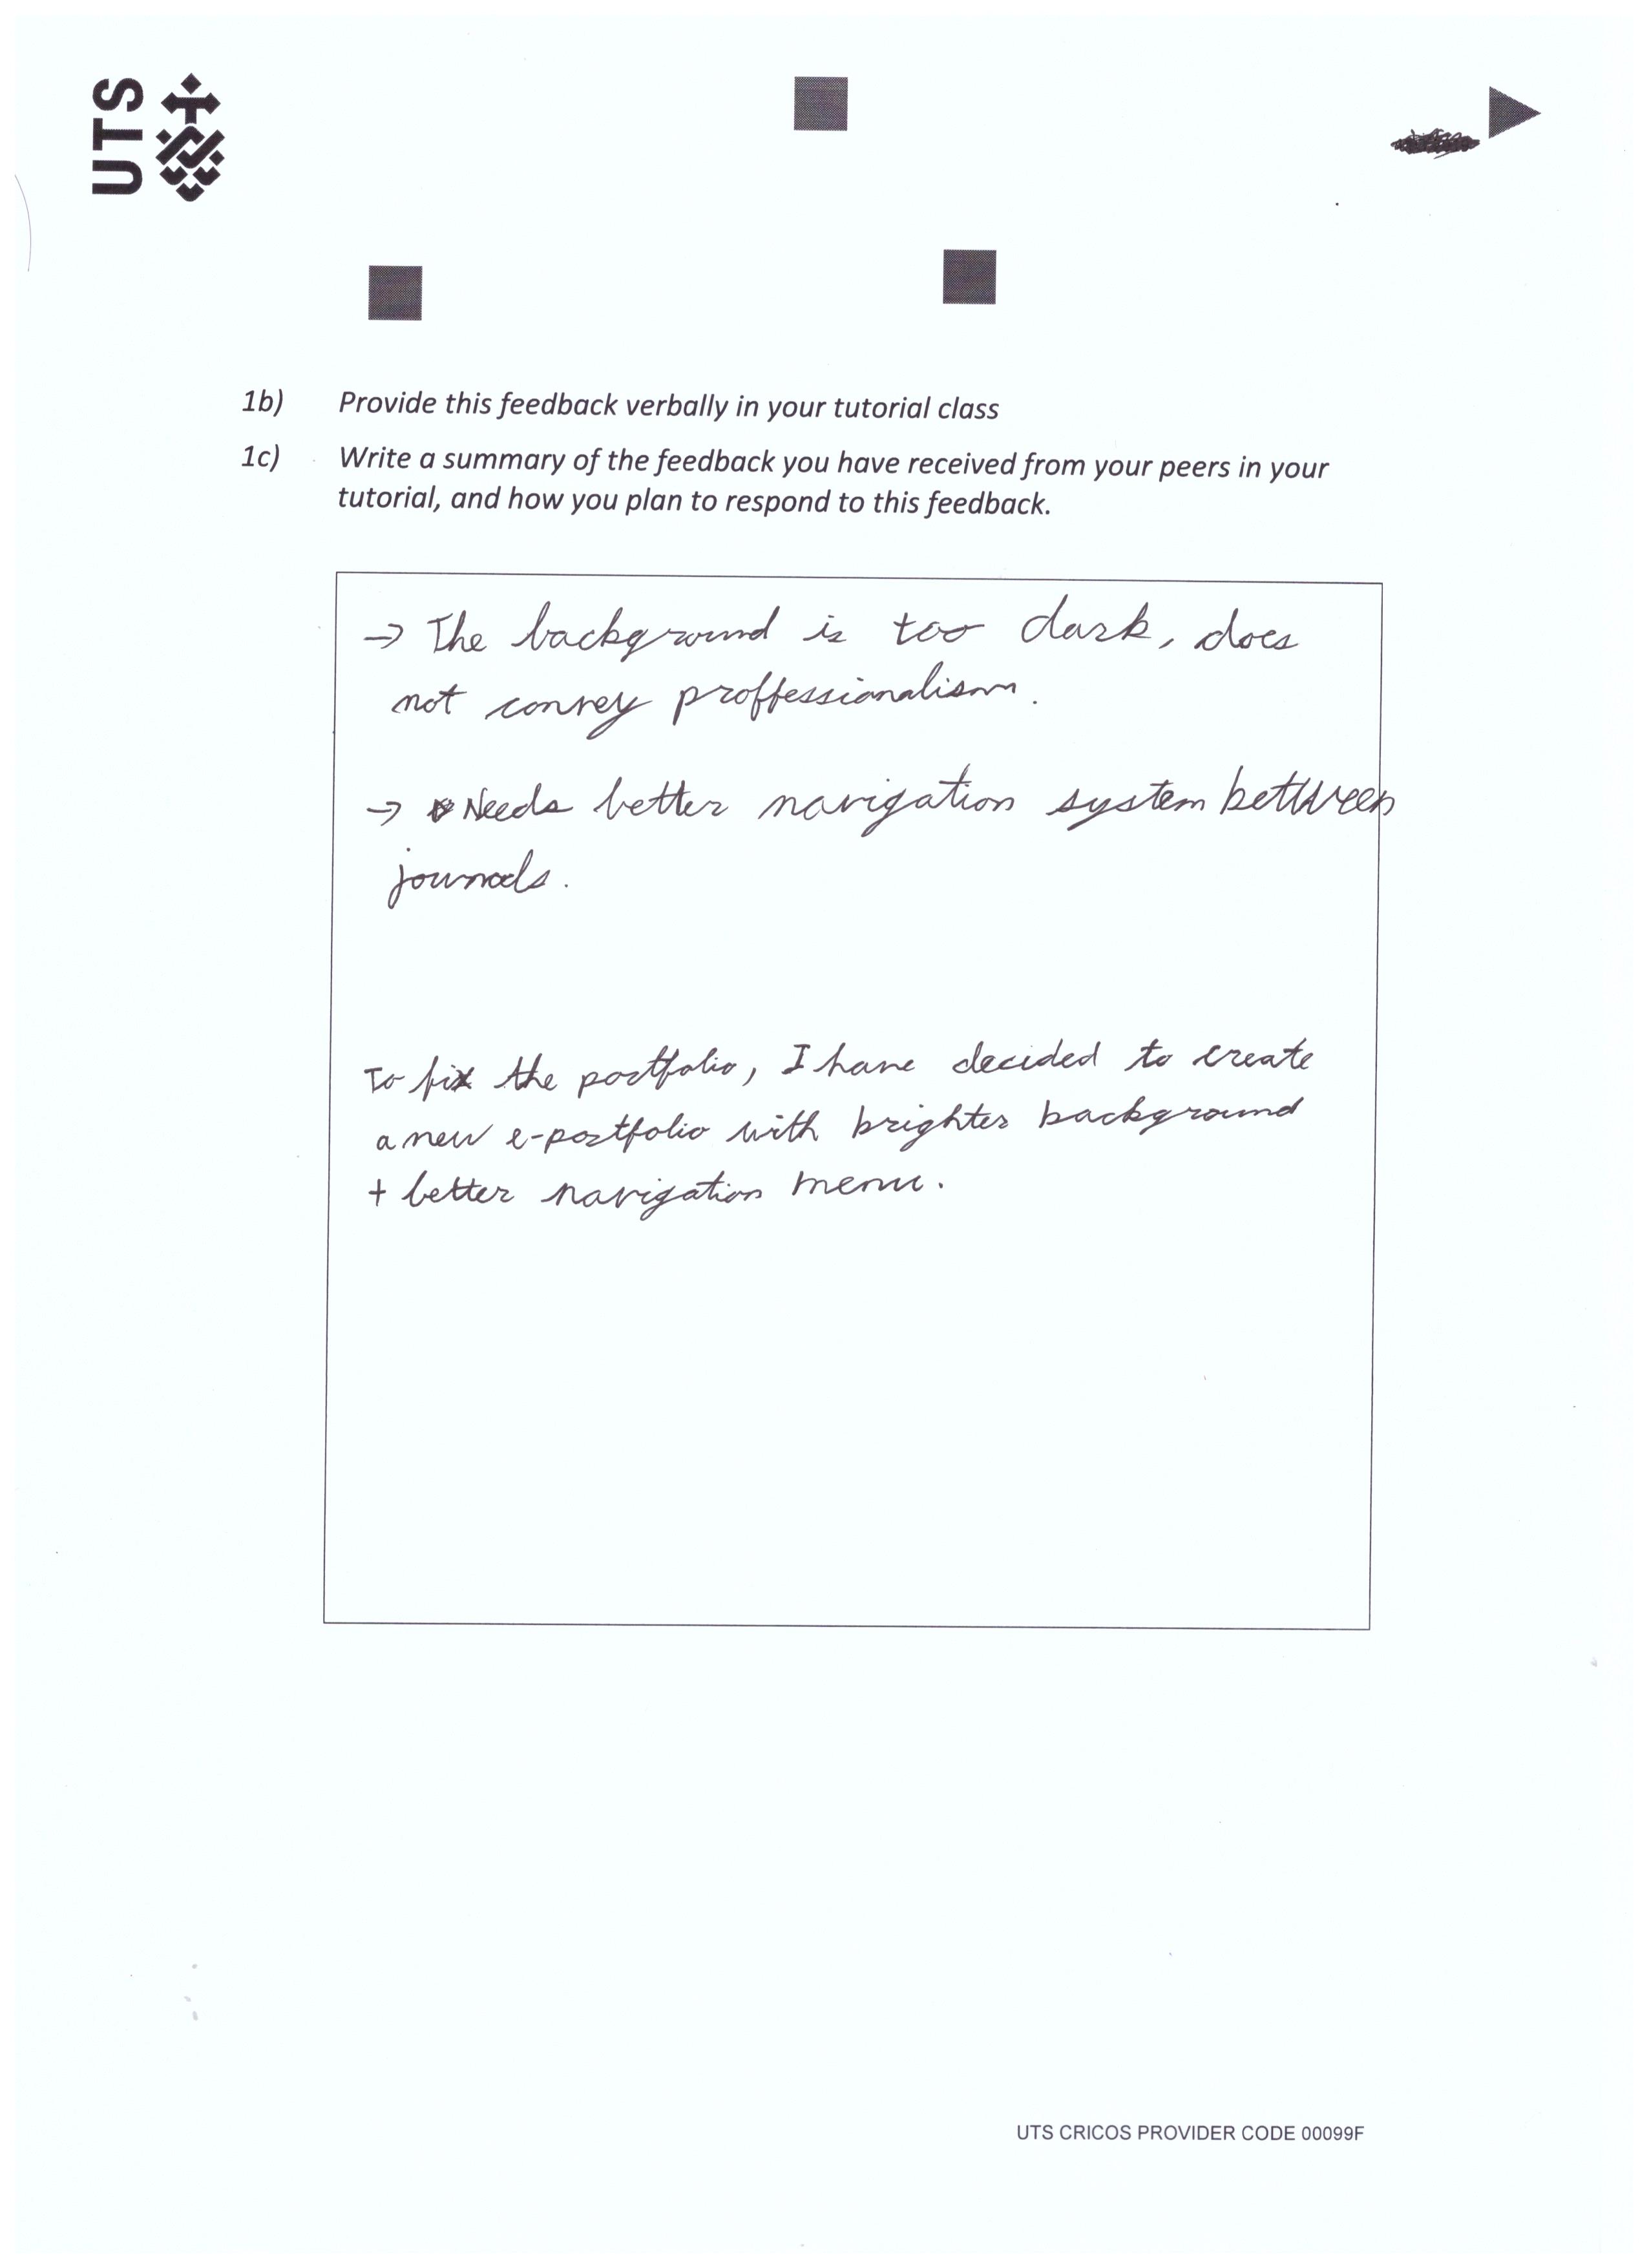 UTS
1b) Provide this feedback verbally in your tutorial class
1c) Write a summary of the feedback you have received from your peers in your
tutorial, and how you plan to respond to this feedback.
→ The background is too dark, does
not convey proffessionalism.
→ Needs better navigation system between
journals.
To fix the portfolio, I have decided to create
a new e-portfolio with brighter background
+ better navigation menu.
UTS CRICOS PROVIDER CODE 00099F